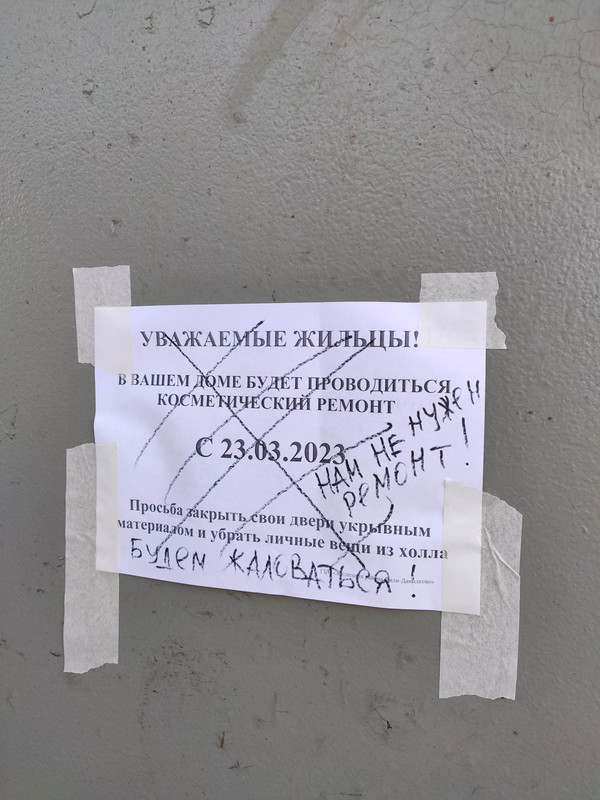 УВАЖАЕМЫЕ ЖИЛЬЦЫ!
В ВАШЕМ ДОМЕ БУДЕТ ПРОВОДИТЬСЯ
КОСМЕТИЧЕСКИЙ РЕМОНТ
С 23.03.2023
НАМ НЕ НУЖЕН
РЕМОНТ!
Просьба закрыть свои двери укрывным
материалом и убрать личные вещи из холла
БУДЕМ ЖАЛОВАТЬСЯ!